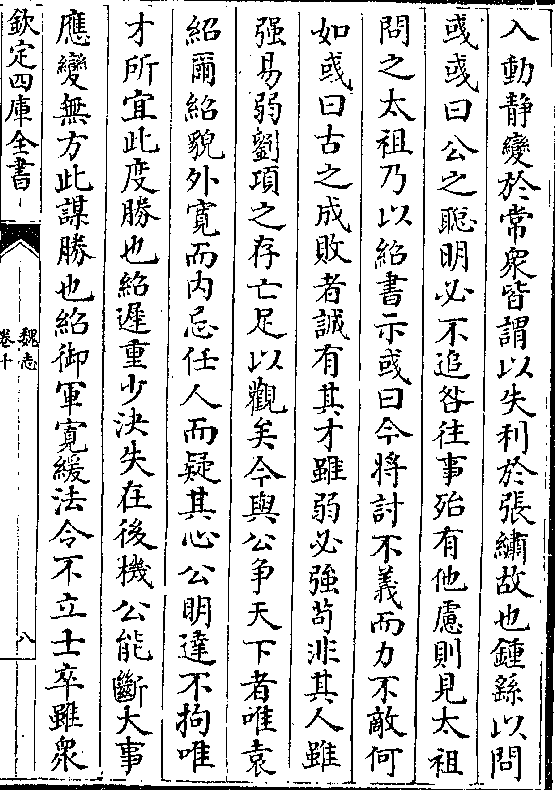 入動靜變於常衆皆謂以失利於張繡故也鍾繇以問
彧彧曰公之聰明必不追咎往事殆有他慮則見太祖
問之太祖乃以紹書示彧曰今將討不義而力不敵何
如彧曰古之成敗者誠有其才雖弱必強苟非其人雖
强易弱劉項之存亡足以觀矣今與公爭天下者唯袁
紹爾紹貌外寛而内忌任人而疑其心公明達不拘唯
才所宜此度勝也紹遲重少決失在後機公能斷大事
應變無方此謀勝也紹御軍寛緩法令不立士卒雖衆
欽定四庫全書
魏志
卷十
八